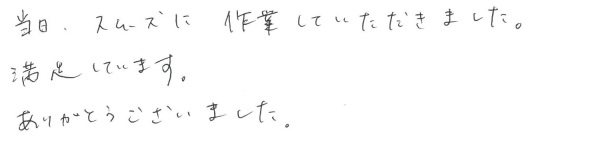 当日、スムーズに 作業していただきました。
満足しています。
ありがとうございました。